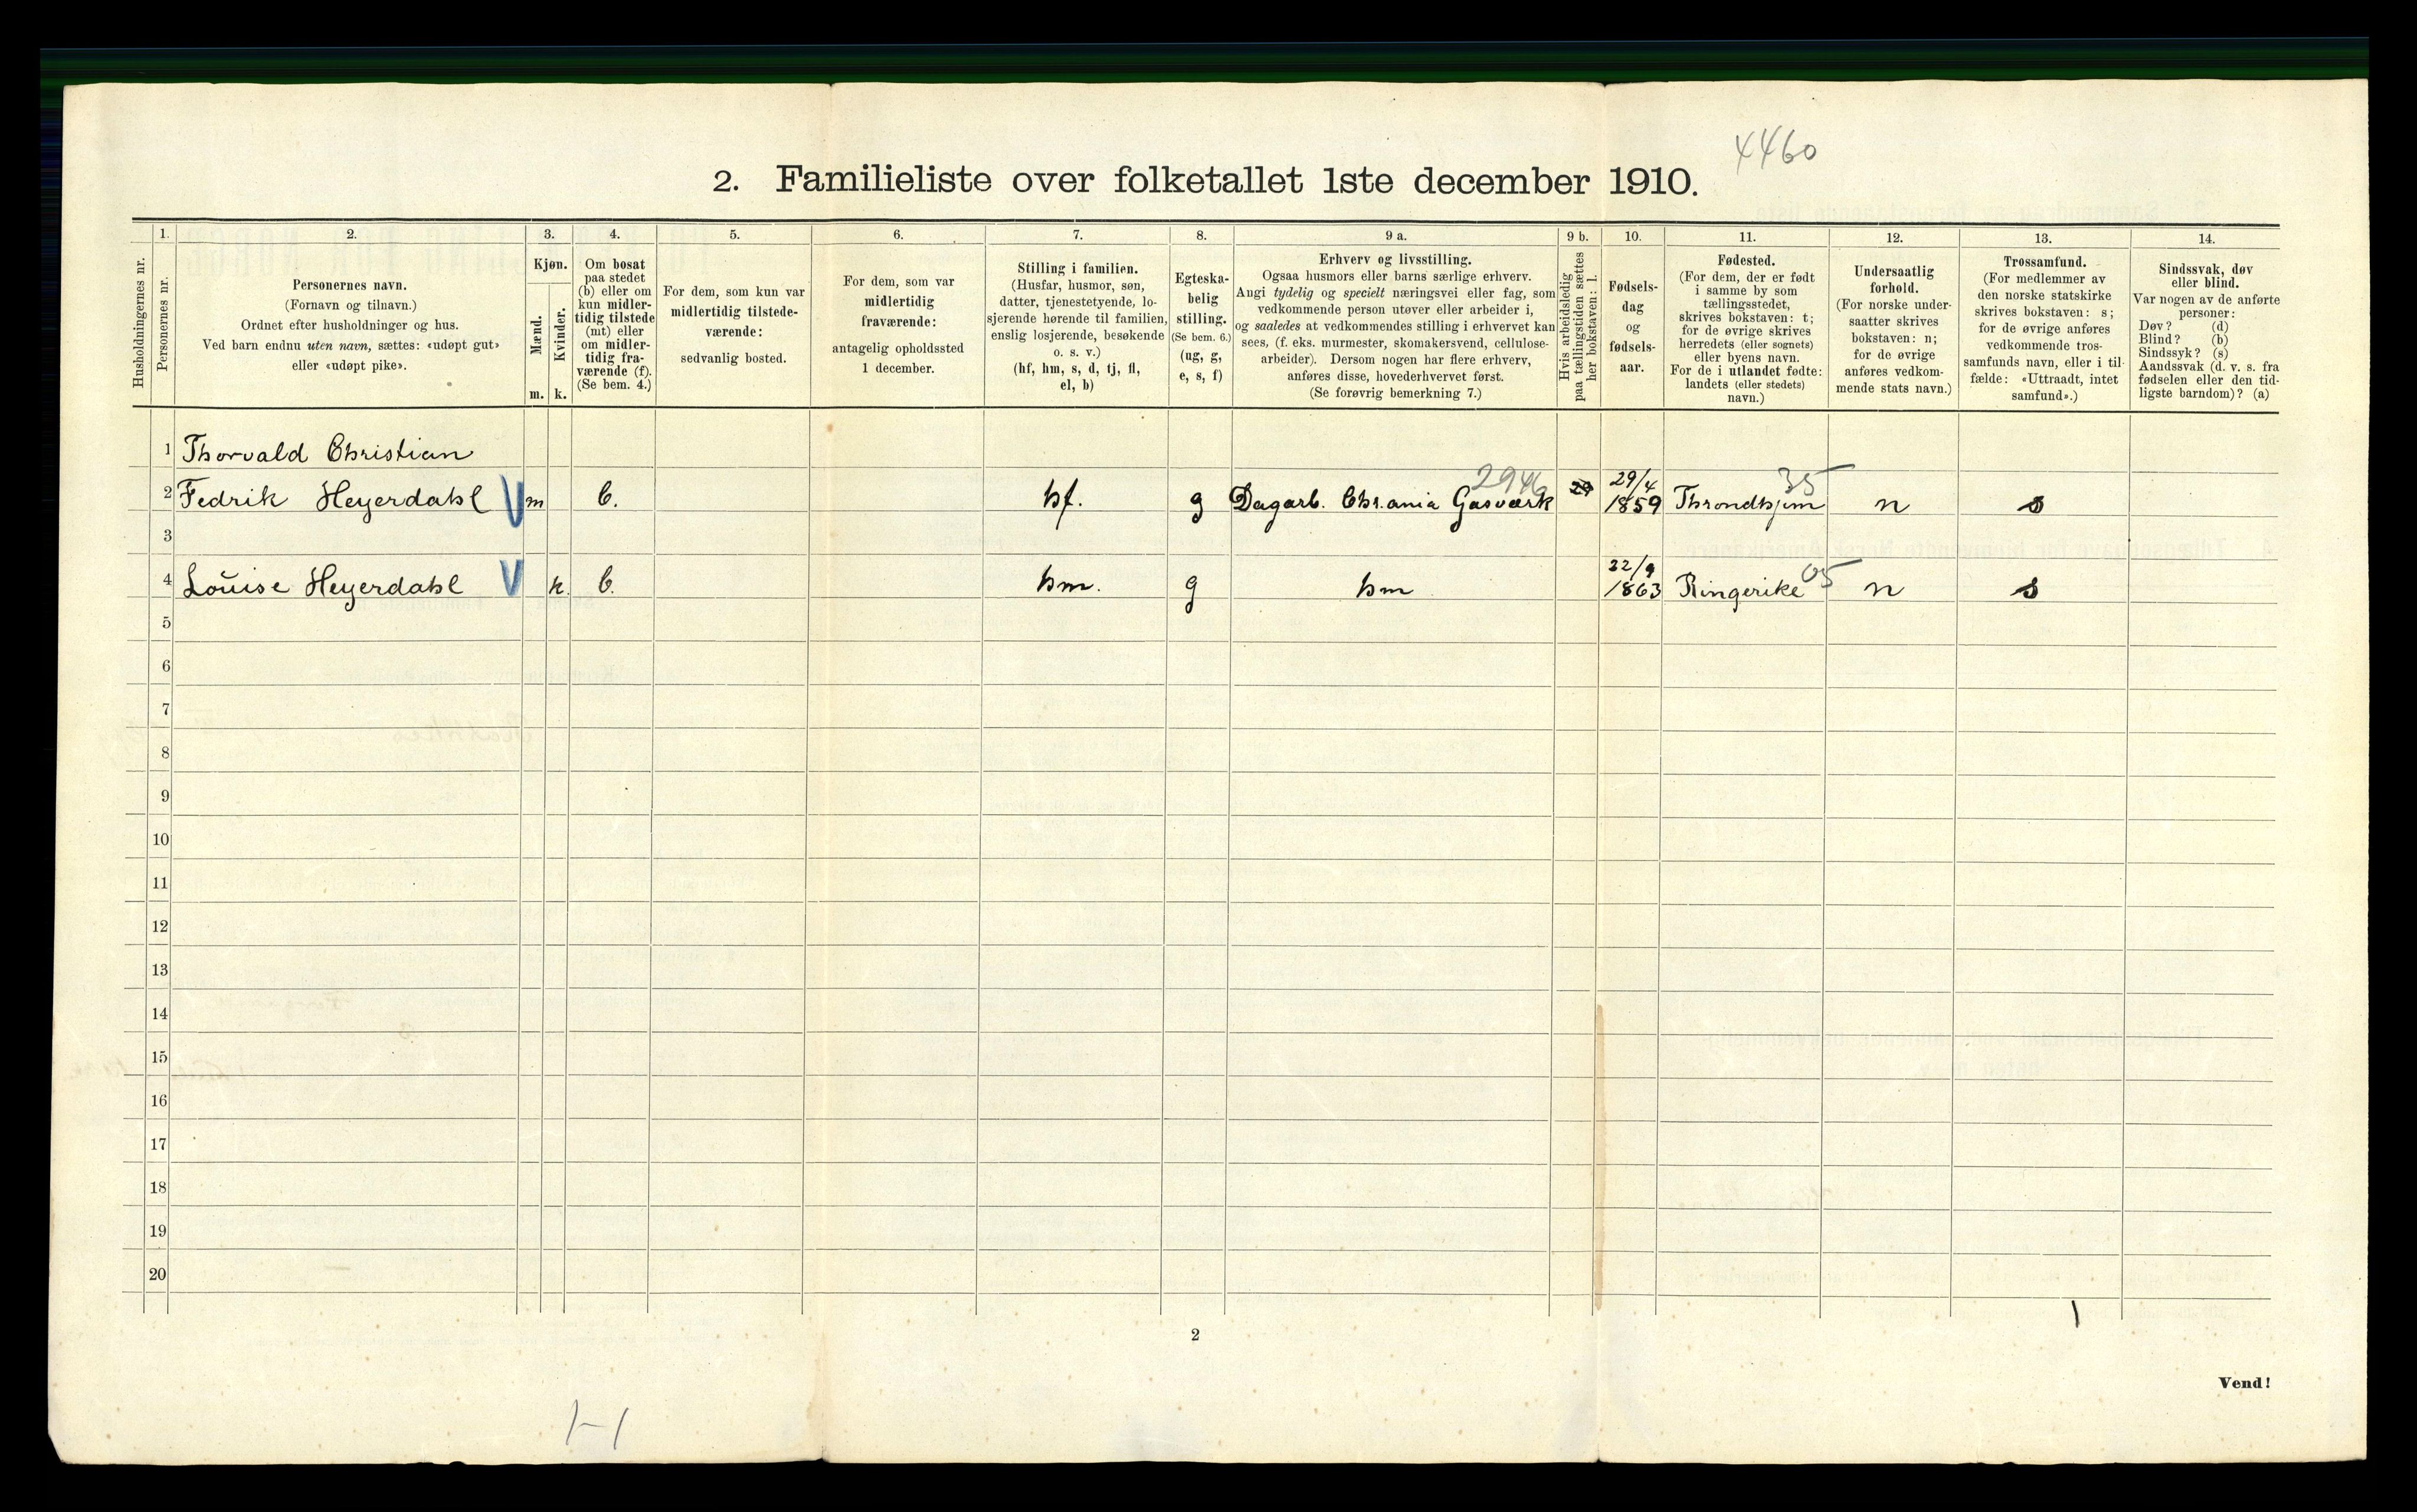 4460
2. Familieliste over folketallet 1ste december 1910.
Husholdningernes nr.
1.
Personernes nr.
2.
Personernes navn.
(Fornavn og tilnavn.)
Ordnet efter husholdninger og hus.
Ved barn endnu uten navn, sættes: «udøpt gut»
eller «udøpt pike».
3.
Kjøn.
Mænd.
Kvinder.
m. k.
4.
Om bosat
paa stedet
(b) eller om
kun midler-
tidig tilstede
(mt) eller
om midler-
tidig fra-
værende (f).
(Se bem. 4.)
5.
For dem, som kun var
midlertidig tilstede-
værende:
sedvanlig bosted.
6.
For dem, som var
midlertidig
fraværende:
antagelig opholdssted
1 december.
7.
Stilling i familien.
(Husfar, husmor, søn,
datter, tjenestetyende, lo-
sjerende hørende til familien,
enslig losjerende, besøkende
o. s. v.)
(hf, hm, s, d, tj, fl,
el, b)
8.
Egteska-
belig
stilling.
(Se bem. 6.)
(ug, g,
e, s, f)
9 a.
Erhverv og livsstilling.
Ogsaa husmors eller barns særlige erhverv.
Angi tydelig og specielt næringsvei eller fag, som
vedkommende person utøver eller arbeider i,
og saaledes at vedkommendes stilling i erhvervet kan
sees, (f. eks. murmester, skomakersvend, cellulose-
arbeider). Dersom nogen har flere erhverv,
anføres disse, hovederhvervet først.
(Se forøvrig bemerkning 7.)
9 b.
Hvis arbeidsledig
paa tællingstiden sættes
her bokstaven: l.
10.
Fødsels-
dag
og
fødsels-
aar.
11.
Fødested.
(For dem, der er født
i samme by som
tællingsstedet,
skrives bokstaven: t;
for de øvrige skrives
herredets (eller sognets)
eller byens navn.
For de i utlandet fødte:
landets (eller stedets)
navn.)
12.
Undersaatlig
forhold.
(For norske under-
saatter skrives
bokstaven: n;
for de øvrige
anføres vedkom-
mende stats navn.)
13.
Trossamfund.
(For medlemmer av
den norske statskirke
skrives bokstaven: s;
for de øvrige anføres
vedkommende tros-
samfunds navn, eller i til-
fælde: «Uttraadt, intet
samfund».)
14.
Sindssvak, døv
eller blind.
Var nogen av de anførte
personer:
Døv? (d)
Blind? (b)
Sindssyk? (s)
Aandssvak (d. v. s. fra
fødselen eller den tid-
ligste barndom)? (a)
1 Thorvald Christian
2946 29/4 35
2 Fedrik Heyerdahl V m b. hf. g Dagarb. Chr.ania Gasværk 1859 Throndhjem n s
3
22/9 05
4 Louise Heyerdahl V k. b. hm. g hm 1863 Ringerike n s
5
6
7
8
9
10
11
12
13
14
15
16
17
18
19
20
2
Vend!
1-1